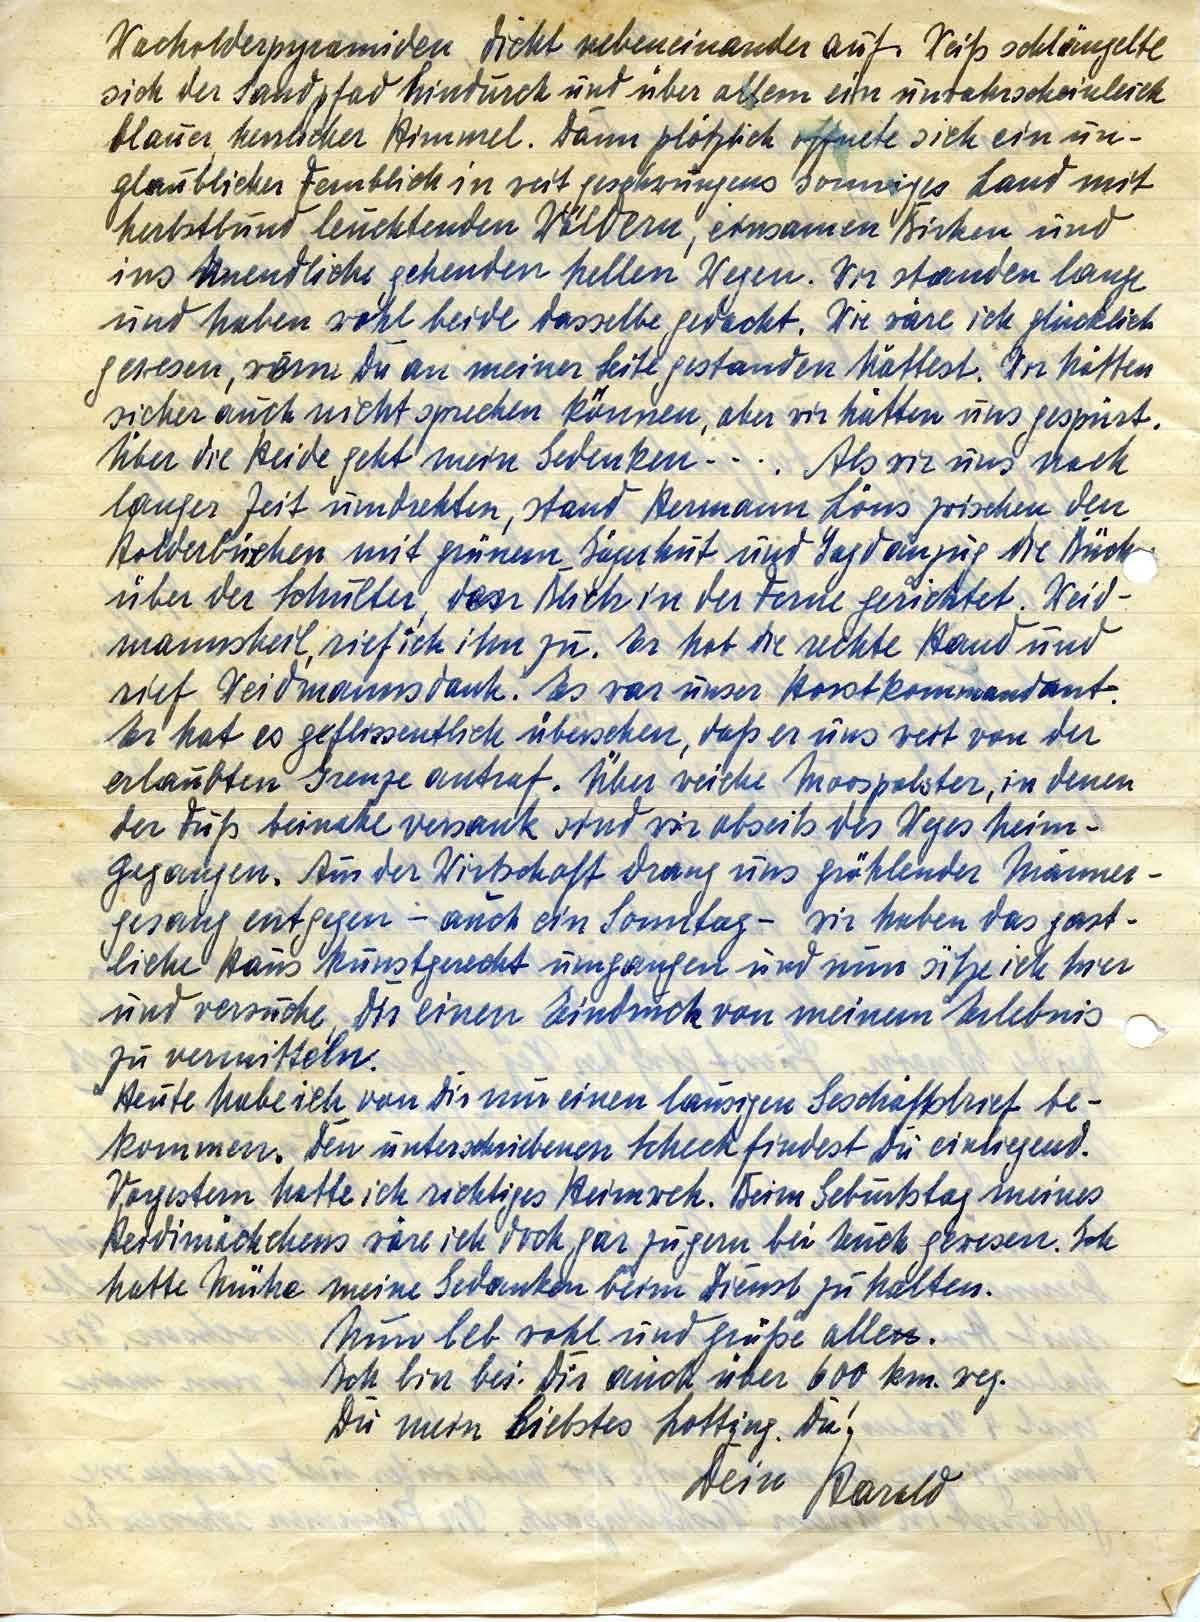 Wacholderpyramiden dicht nebeneinander auf. Weiß schlängelte
sich der Sandpfad hindurch und über allem ein unwahrscheinleich
blauer, herrlicher Himmel. Dann plötzlich öffnete sich ein un-
glaublicher Fernblick in weit geschwungens sonniges Land mit
herbstbund leuchtenden Wäldern, einsamen Birken und
ins Unendliche gehenden hellen Wegen. Wir standen lange
und haben wohl beide dasselbe gedacht. Wie wäre ich glücklich
gewesen, wenn Du an meiner Seite gestanden hättest. Wir hätten
sicher auch nicht sprechen können, aber wir hätten uns gespürt.
Über die Heide geht mein Gedenken - - . Als wir uns nach
langer Zeit umdrehten, stand Hermann Löns zwischen den
Holderbüschen mit grünem Jägerhut und Jagdanzug die Büch
über der Schulter, der Blick in der Ferne gerichtet. Weid-
mannsheil, rief ich ihm zu. Er hob die rechte Hand und
rief Weidmannsdank. Es war unser Horstkommandant.
Er hat es geflissentlich übersehen, daß er uns weit von der
erlaubten Grenze antraf. Über weiche Moospolster, in denen
der Fuß beinahe versank sind wir abseits des Weges heim-
gegangen. Aus der Wirtschaft drang uns gröhlender Männer-
gesang entgegen - auch ein Sonntag - wir haben das gast-
liche Haus kunstgerecht umgangen und nun sitze ich hier
und versuche, Dir einen Eindruck von meinem Erlebnis
zu vermitteln.
Heute habe ich von Dir nur einen lausigen Geschäftsbrief be-
kommen. Den unterschriebenen Scheck findest Du einliegend.
Vorgestern hatte ich richtiges Heimweh. Beim Geburtstag meines
Heidimädchens wäre ich doch gar zu gern bei Euch gewesen. Ich
hatte Mühe meine Gedanken beim Dienst zu halten.
Nun leb wohl und grüße allen.
Ich bin bei Dir auch über 600 km. weg.
Du mein liebstes Du!
Dein Harold